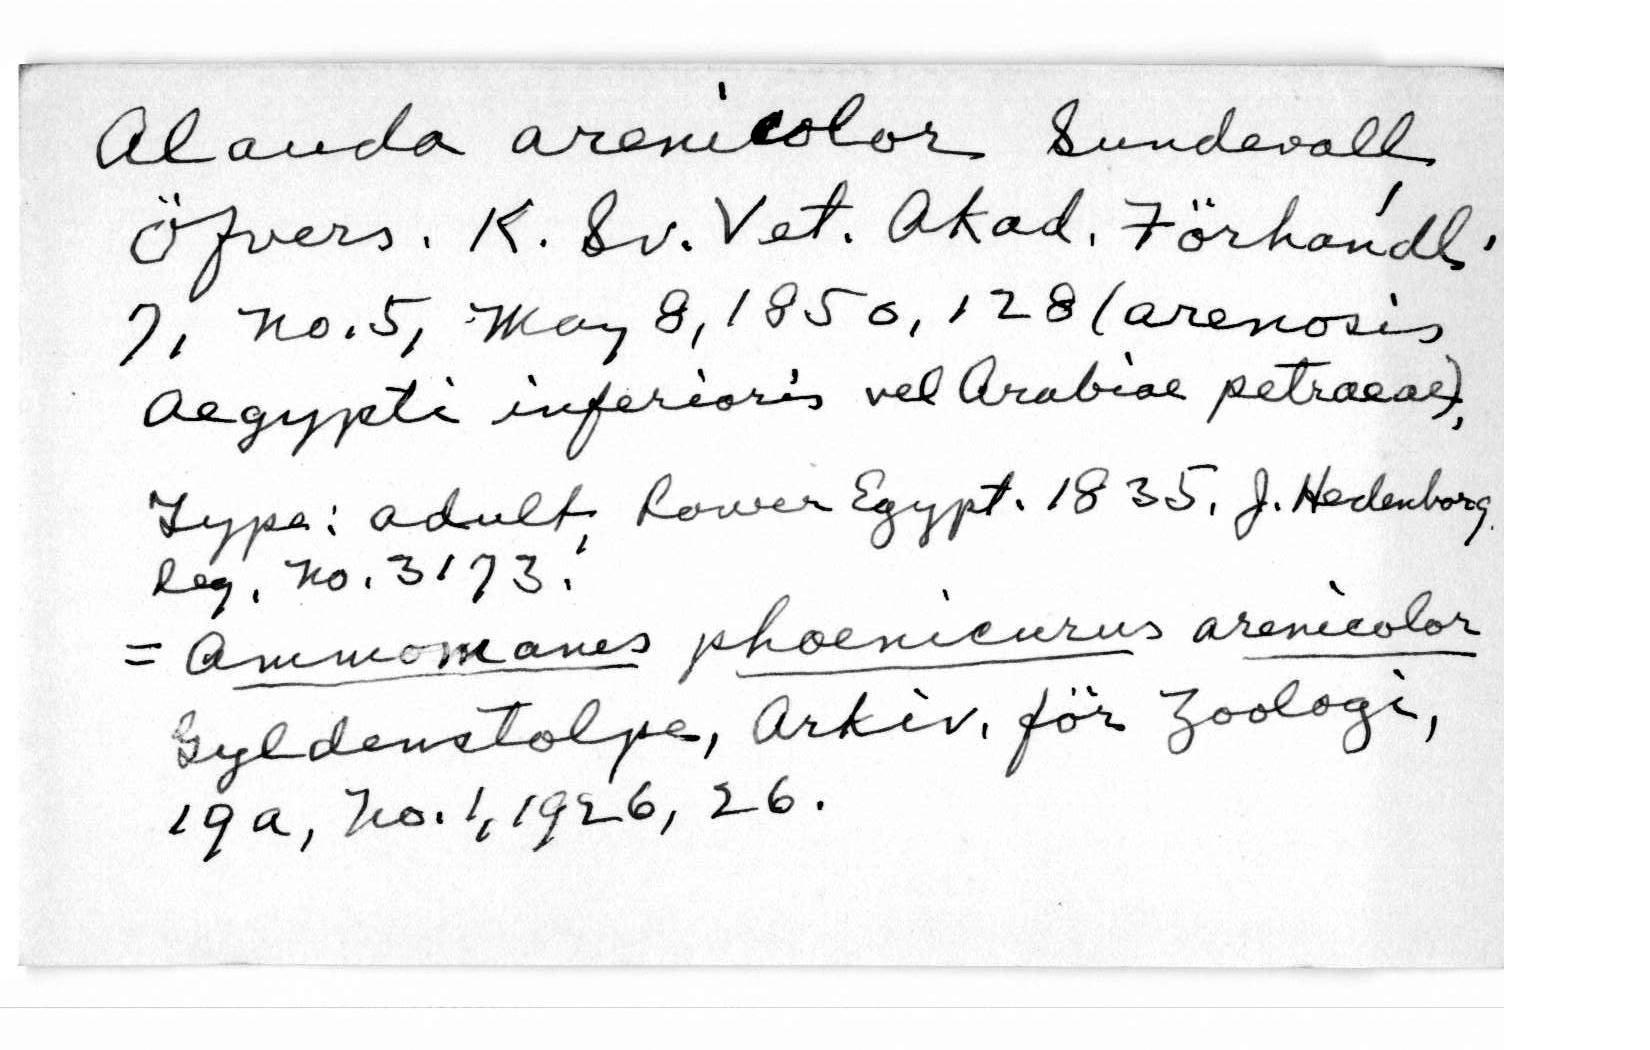 Alauda arenicolor Sundevall,
Öfvers. K. Sv. Vet. Akad. Förhandl.
7, no. 5, May 8, 1850, 128 (arenosis
Aegypti inferioris vel Arabiae petraeae),
Type: adult, Lower Egypt. 1835. J. Hedenborg.
Reg. No. 3173.
= Ammomanes phoenicurus arenicolor
Gyldenstolpe, Arkiv. för Zoologi,
19a, no. 1, 1926, 26.